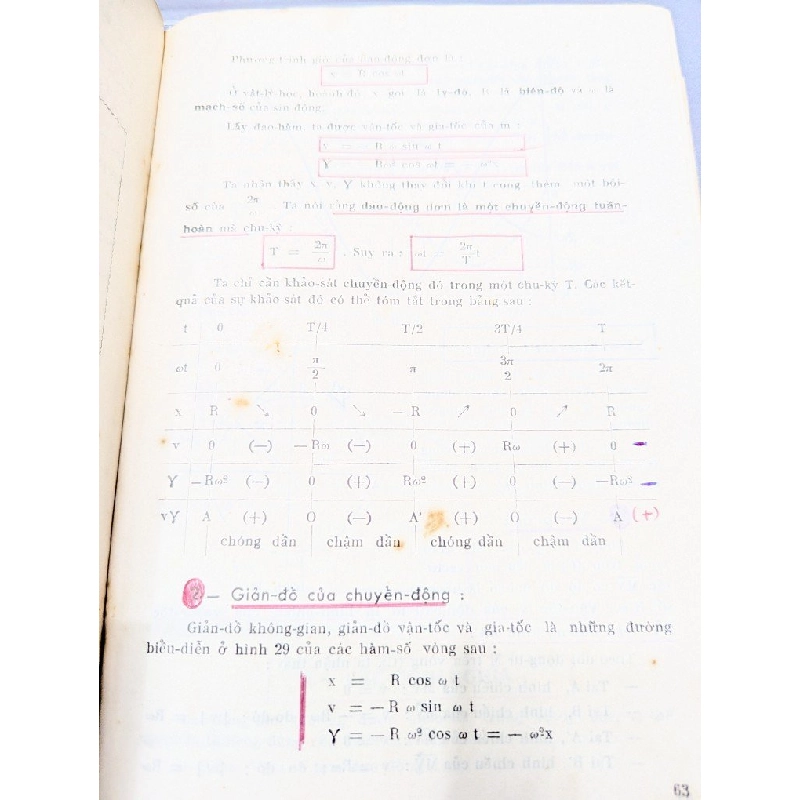 Phương trình giờ của dao-động đơn là :
x = R cos ωt
Ở vật-lý-học, hoành-độ x gọi là ly-độ, R là biên-độ và ω là
mạch-số của sin động.
Lấy đạo-hàm, ta được vận-tốc và gia-tốc của m :
v = — R ω sin ω t
Ɣ = — Rω² cos ωt = — ω²x
Ta nhận thấy x, v, Ɣ không thay đổi khi t cộng thêm một bội-
số của 2π . Ta nói rằng dao-động đơn là một chuyển-động tuần-
hoàn mà chu-kỳ :
T = 2π/ω . Suy ra : ωt = 2π/T t
Ta chỉ cần khảo-sát chuyển động đó trong một chu-kỳ T. Các kết-
quả của sự khảo sát đó có thể tóm tắt trong bảng sau :
t 0 T/4 T/2 3T/4 T
ωt 0 π/2 π 3π/2 2π
x R ↘ 0 ↘ — R ↗ 0 ↗ R
v 0 (—) — Rω (—) 0 (+) Rω (+) 0 —
Ɣ —Rω² (—) 0 (+) Rω² (+) 0 (—) —Rω² —
vƔ A (+) O (—) A' (+) O (—) A (+)
chóng dần chậm dần chóng dần chậm dần
2 — Giản-đồ của chuyển-động :
Giản-đồ không-gian, giản-đồ vận-tốc và gia-tốc là những đường
biểu-diễn ở hình 29 của các hàm-số vòng sau :
x = R cos ω t
v = — R ω sin ω t
Ɣ = — R ω² cos ω t = — ω²x
63